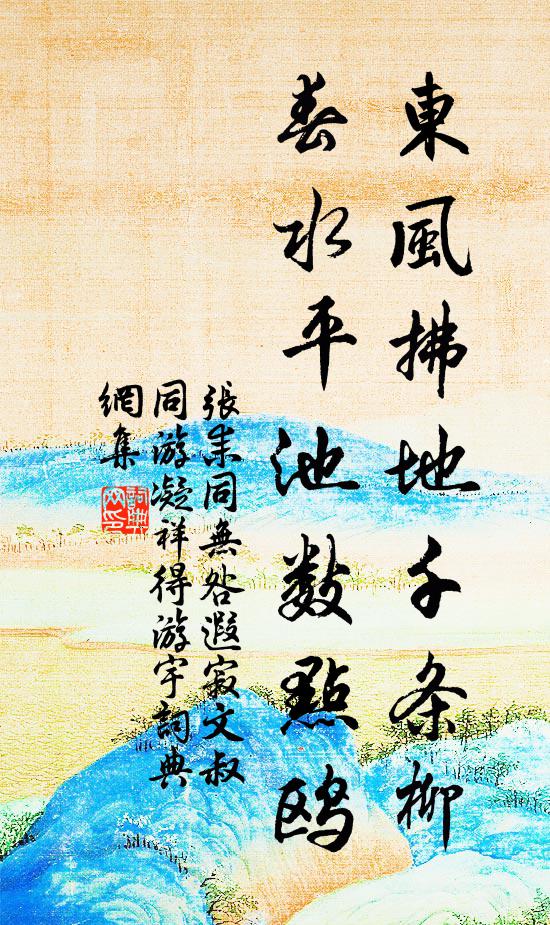 東風拂地千条柳
春水平池数點鸥
張耒同無咎遐寂文叔
同游凝祥得游字詞典
網集
詞典
网印